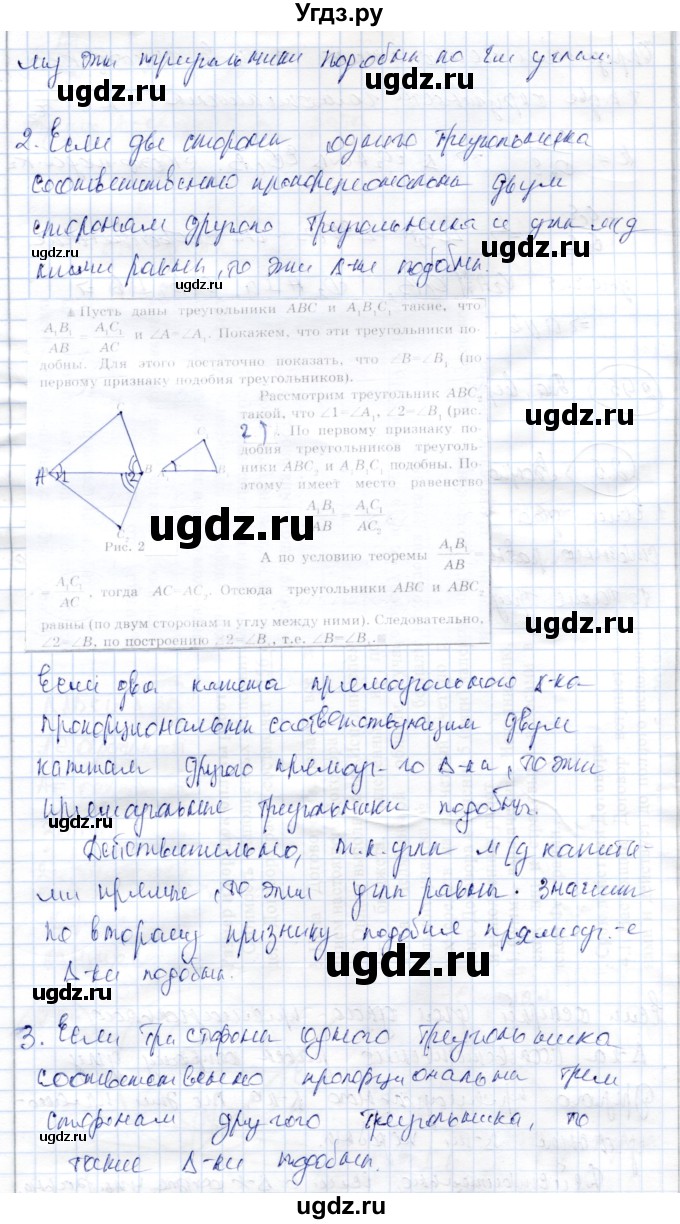 Угдз.ру
эти треугольники подобны по
ugdz.ru
ugdz.ru
2. Если две стороны одного треугольника
соответственно пропорциональны двум
сторонам другого треугольника и углы м/д
ugdz.ru
ними равны, то эти Δ-ки подобны.
ugdz.ru
Пусть даны треугольники ABC и A₁B₁C₁ такие, что
A₁B₁/AB = A₁C₁/AC и ∠A=∠A₁. Покажем, что эти треугольники по-
добны. Для этого достаточно показать, что ∠B=∠B₁ (по
первому признаку подобия треугольников).
Рассмотрим треугольник ABC₂
такой, что ∠1=∠A₁, ∠2=∠B₁ (рис.
2). По первому признаку по-
добия треугольников треуголь-
ники ABC₂ и A₁B₁C₁ подобны. По-
этому имеет место равенство
A₁B₁/AB = A₁C₁/AC₂
A 1 2 B C₂
ugdz.ru
Рис. 2
А по условию теоремы A₁B₁/AB =
= A₁C₁/AC, тогда AC=AC₂. Отсюда треугольники ABC и ABC₂
ugdz.ru
равны (по двум сторонам и углу между ними). Следовательно,
∠2=∠B, по построению ∠2=∠B₁, т.е. ∠B=∠B₁.
Если два катета прямоугольного Δ-ка
пропорциональны соответствующим двум
катетам другого прямоуг-го Δ-ка, то эти
прямоугольные треугольники подобны.
ugdz.ru
Действительно, т.к. углы м/д катета-
ми прямые, то эти углы равны. Значит
по второму признаку подобия прямоуг.-е
ugdz.ru
Δ-ки подобны.
ugdz.ru
3. Если три стороны одного треугольника
соответственно пропорциональны трем
сторонам другого треугольника, то
ugdz.ru
такие Δ-ки подобны.
ugdz.ru
ugdz.ru